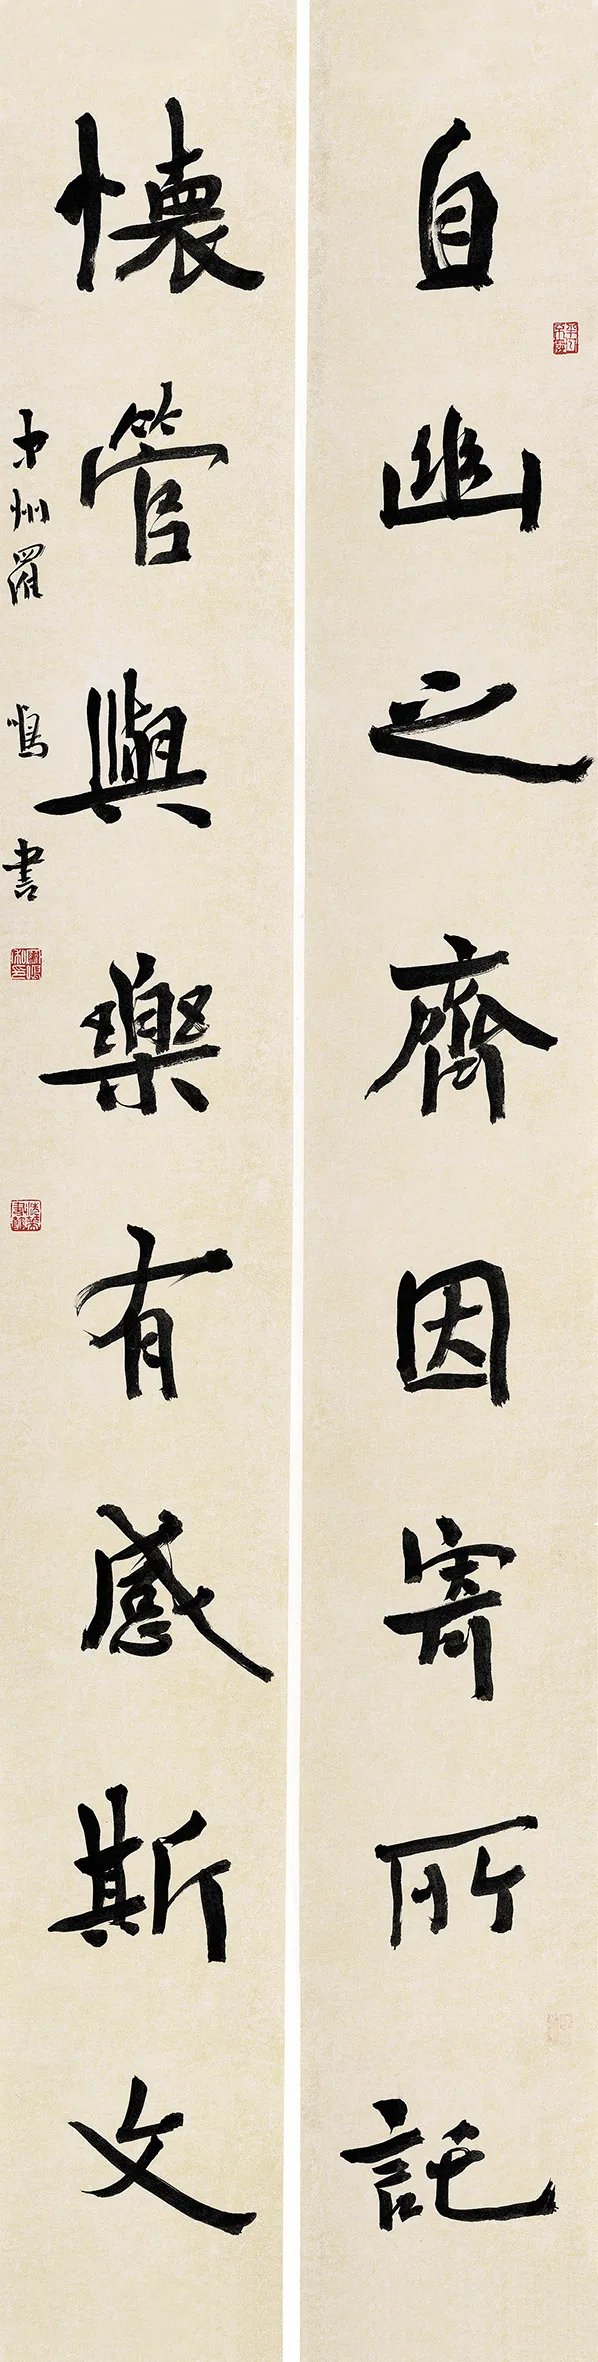 自幽之齊因寄所託
懷管與樂有感斯文
州羅鳴書